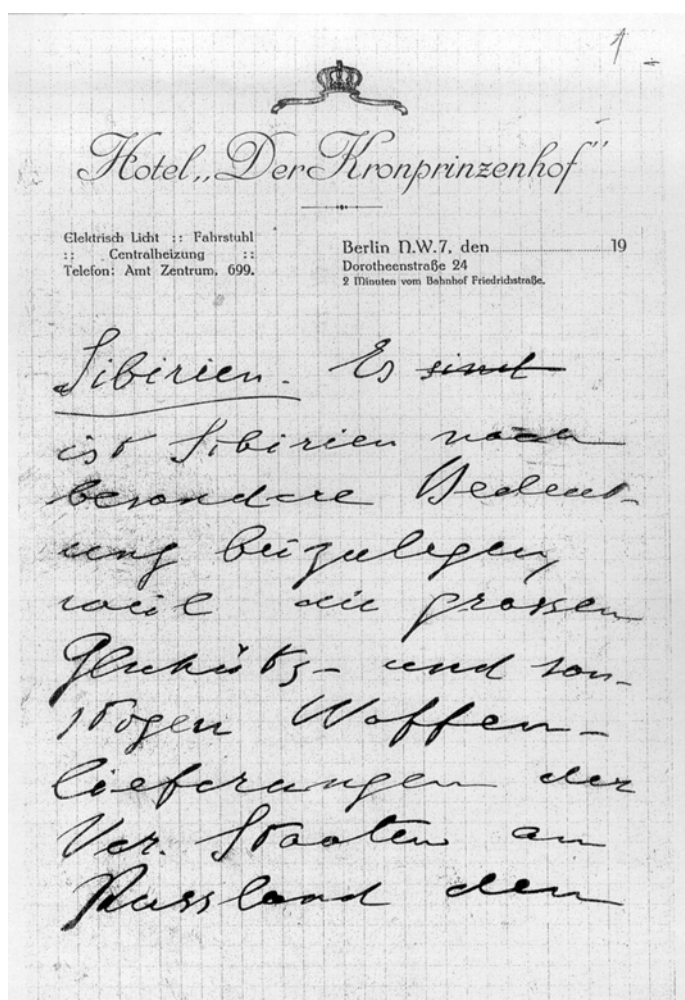 1
Hotel „Der Kronprinzenhof"
Elektrisch Licht :: Fahrstuhl
:: Centralheizung ::
Telefon: Amt Zentrum, 699.
Berlin N.W.7, den 19
Dorotheenstraße 24
2 Minuten vom Bahnhof Friedrichstraße.
Sibirien. Es sind
ist Sibirien noch
besondere Bedeut-
ung beizulegen,
weil die grossen
Geschütz- und son-
stigen Waffen-
lieferungen der
Ver. Staaten an
Russland den